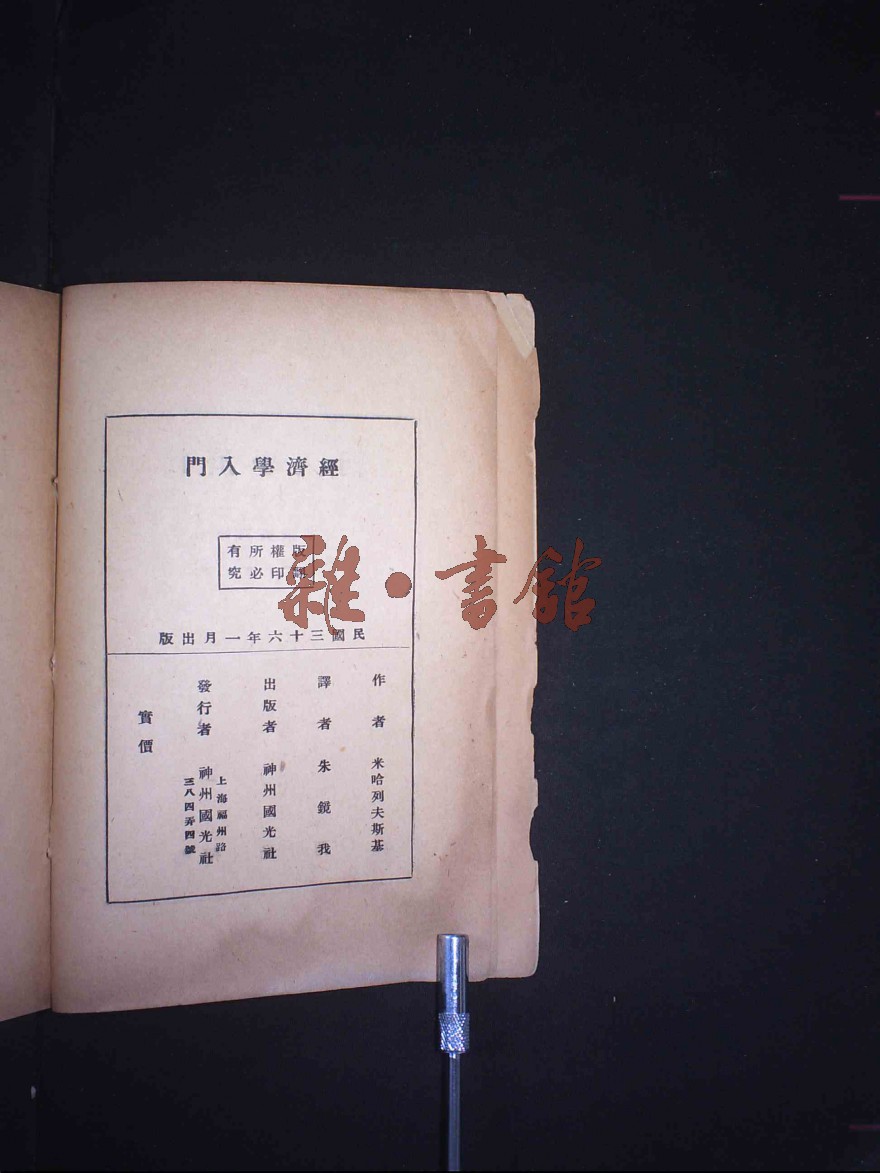 經濟學入門
版權所有
翻印必究
民國三十六年一月出版
作者 米哈列夫斯基
譯者 朱鏡我
出版者 神州國光社
發行者 神州國光社
上海福州路
三八四弄四號
實價
雜·書館